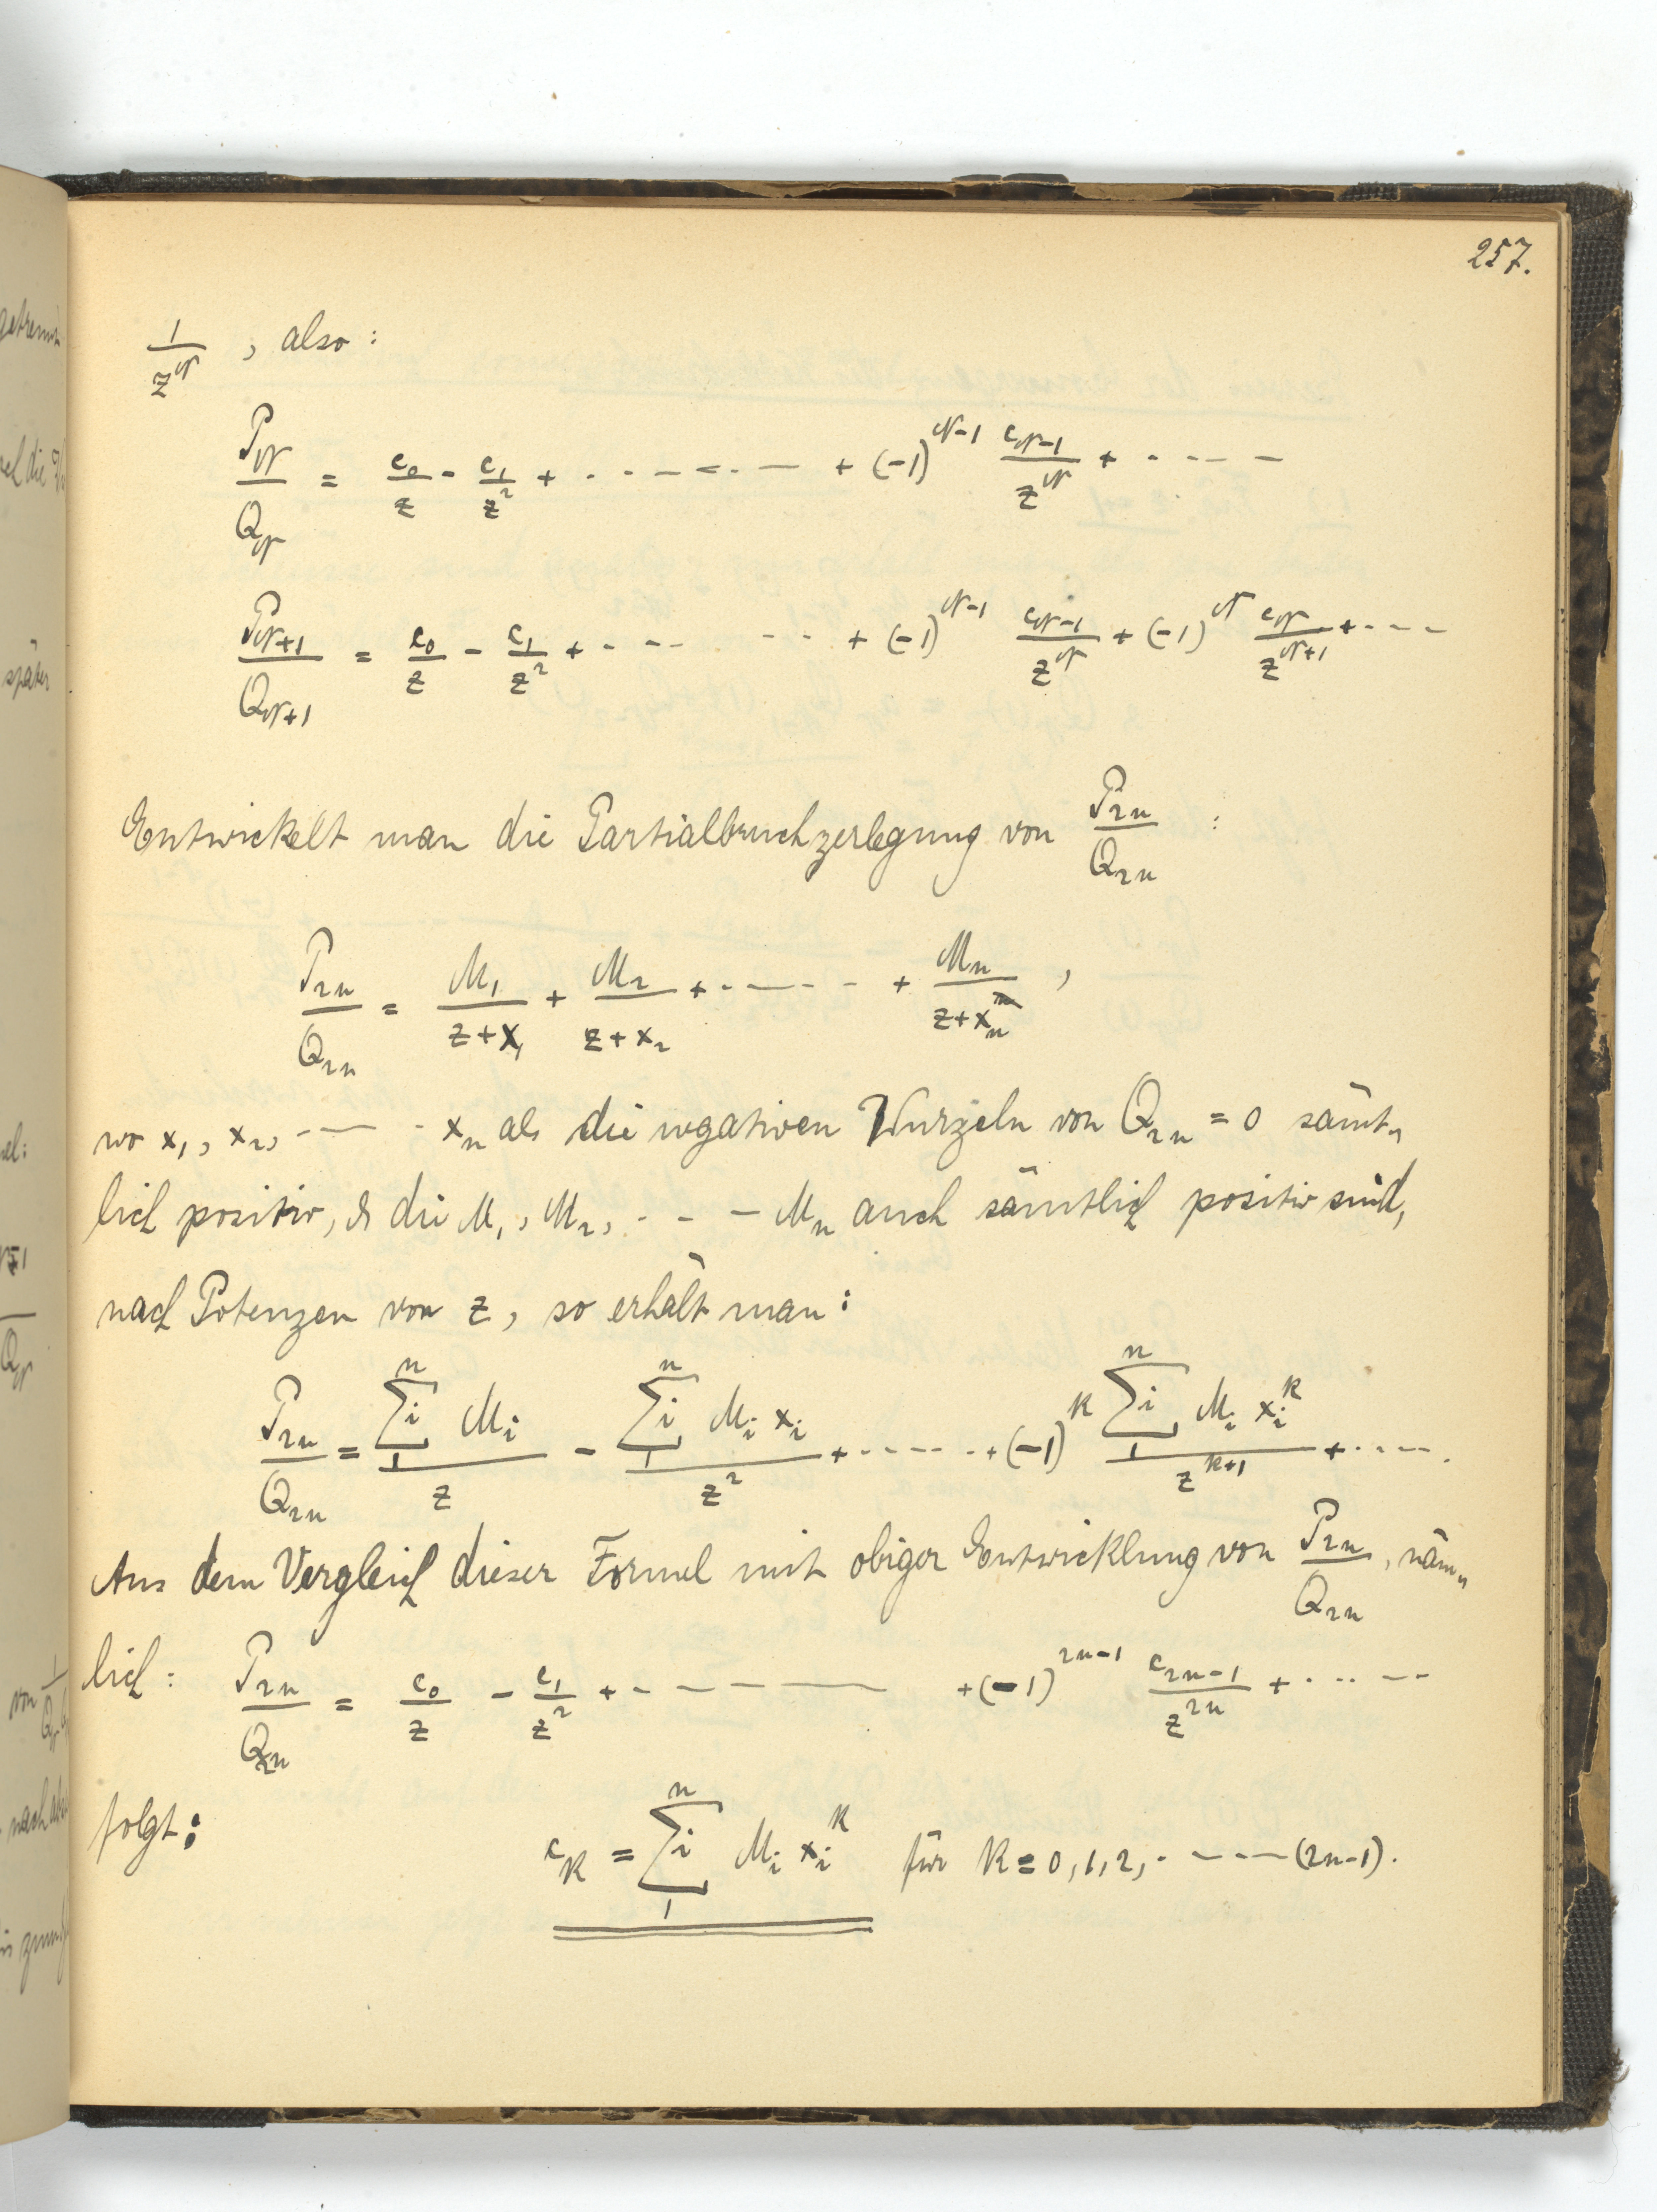 257.
1/z^ν , also :
P_ν/Q_ν = c_0/z - c_1/z^2 + · · · - - - + (-1)^{ν-1} c_{ν-1}/z^ν + · - - -
P_{ν+1}/Q_{ν+1} = c_0/z - c_1/z^2 + · - - - · · + (-1)^{ν-1} c_{ν-1}/z^ν + (-1)^ν c_ν/z^{ν+1} + · - - -
Entwickelt man die Partialbruchzerlegung von P_{2n}/Q_{2n} :
P_{2n}/Q_{2n} = M_1/(z+x_1) + M_2/(z+x_2) + · - - - - + M_n/(z+x_n) ,
wo x_1, x_2, - - - x_n als die negativen Wurzeln von Q_{2n} = 0 sämt„
lich positiv, & die M_1, M_2, · - - M_n auch sämtlich positiv sind,
nach Potenzen von z, so erhält man :
P_{2n}/Q_{2n} = Σ_1^n i M_i / z - Σ_1^n i M_i x_i / z^2 + · - - - · + (-1)^k Σ_1^n i M_i x_i^k / z^{k+1} + · - - - .
Aus dem Vergleich dieser Formel mit obiger Entwicklung von P_{2n}/Q_{2n}, näm„
lich : P_{2n}/Q_{2n} = c_0/z - c_1/z^2 + - - - - - + (-1)^{2n-1} c_{2n-1}/z^{2n} + · · · - -
folgt : c_k = Σ_1^n i M_i x_i^k für k = 0, 1, 2, · - - - (2n-1) .